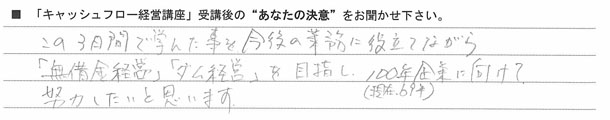 ■ 「キャッシュフロー経営講座」受講後の“あなたの決意”をお聞かせ下さい。
この3日間で学んだ事を今後の業務に役立てながら
「無借金経営」「ダム経営」を目指し、100年企業に向けて
(現在、69年)
努力したいと思います。